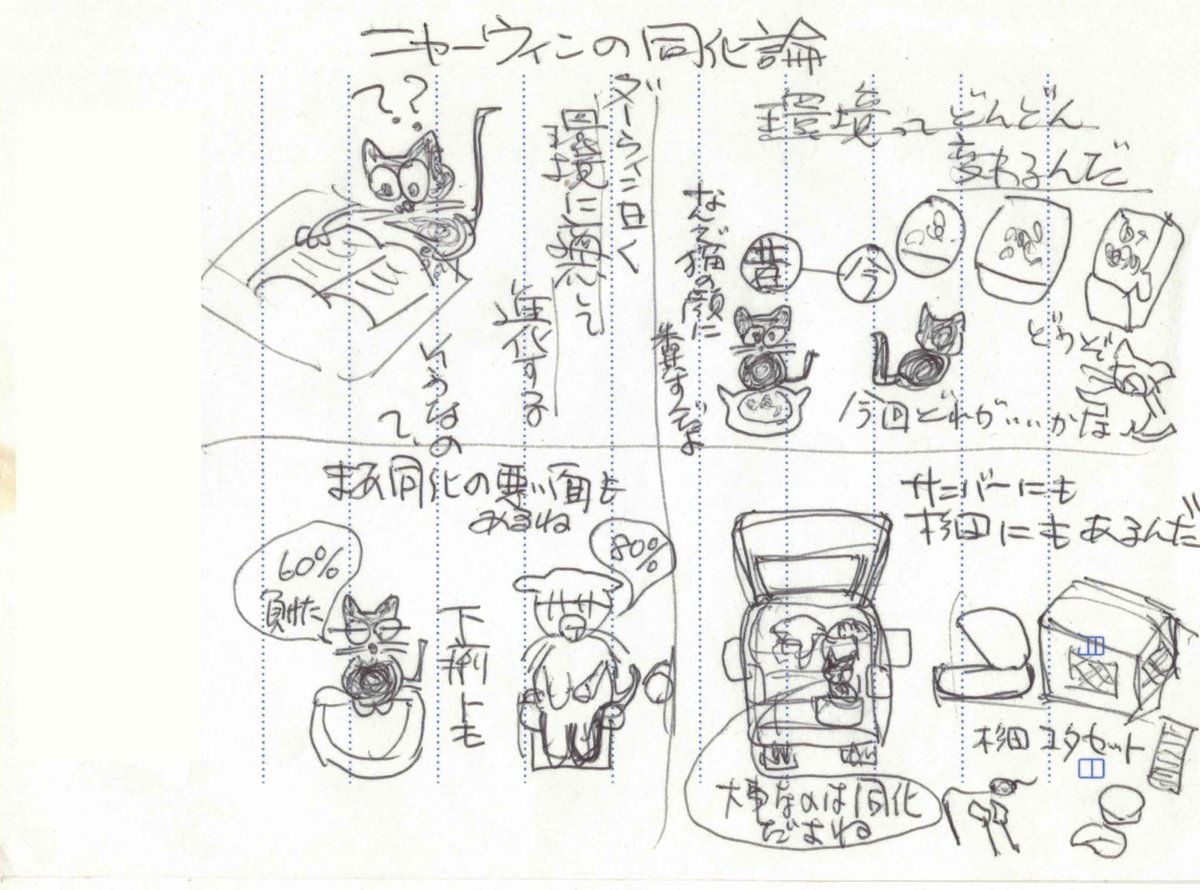 ニャーウィンの同化論
??
ダーウィン曰く
環境に適応して
進化する
そうなの
て、
環境ってどんどん
変わるんだ
なんで猫の顔に
糞するだよ
昔
今
どうぞ
今回どれがいいかな
また同化の悪い面も
あるね
60%
負けた
下痢にも
80%
サンバーにも
杉田にもあるんだ
杉田ユタセット
大事なのは同化
だよね